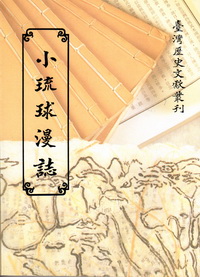 臺灣歷史文獻叢刊
小琉球漫誌